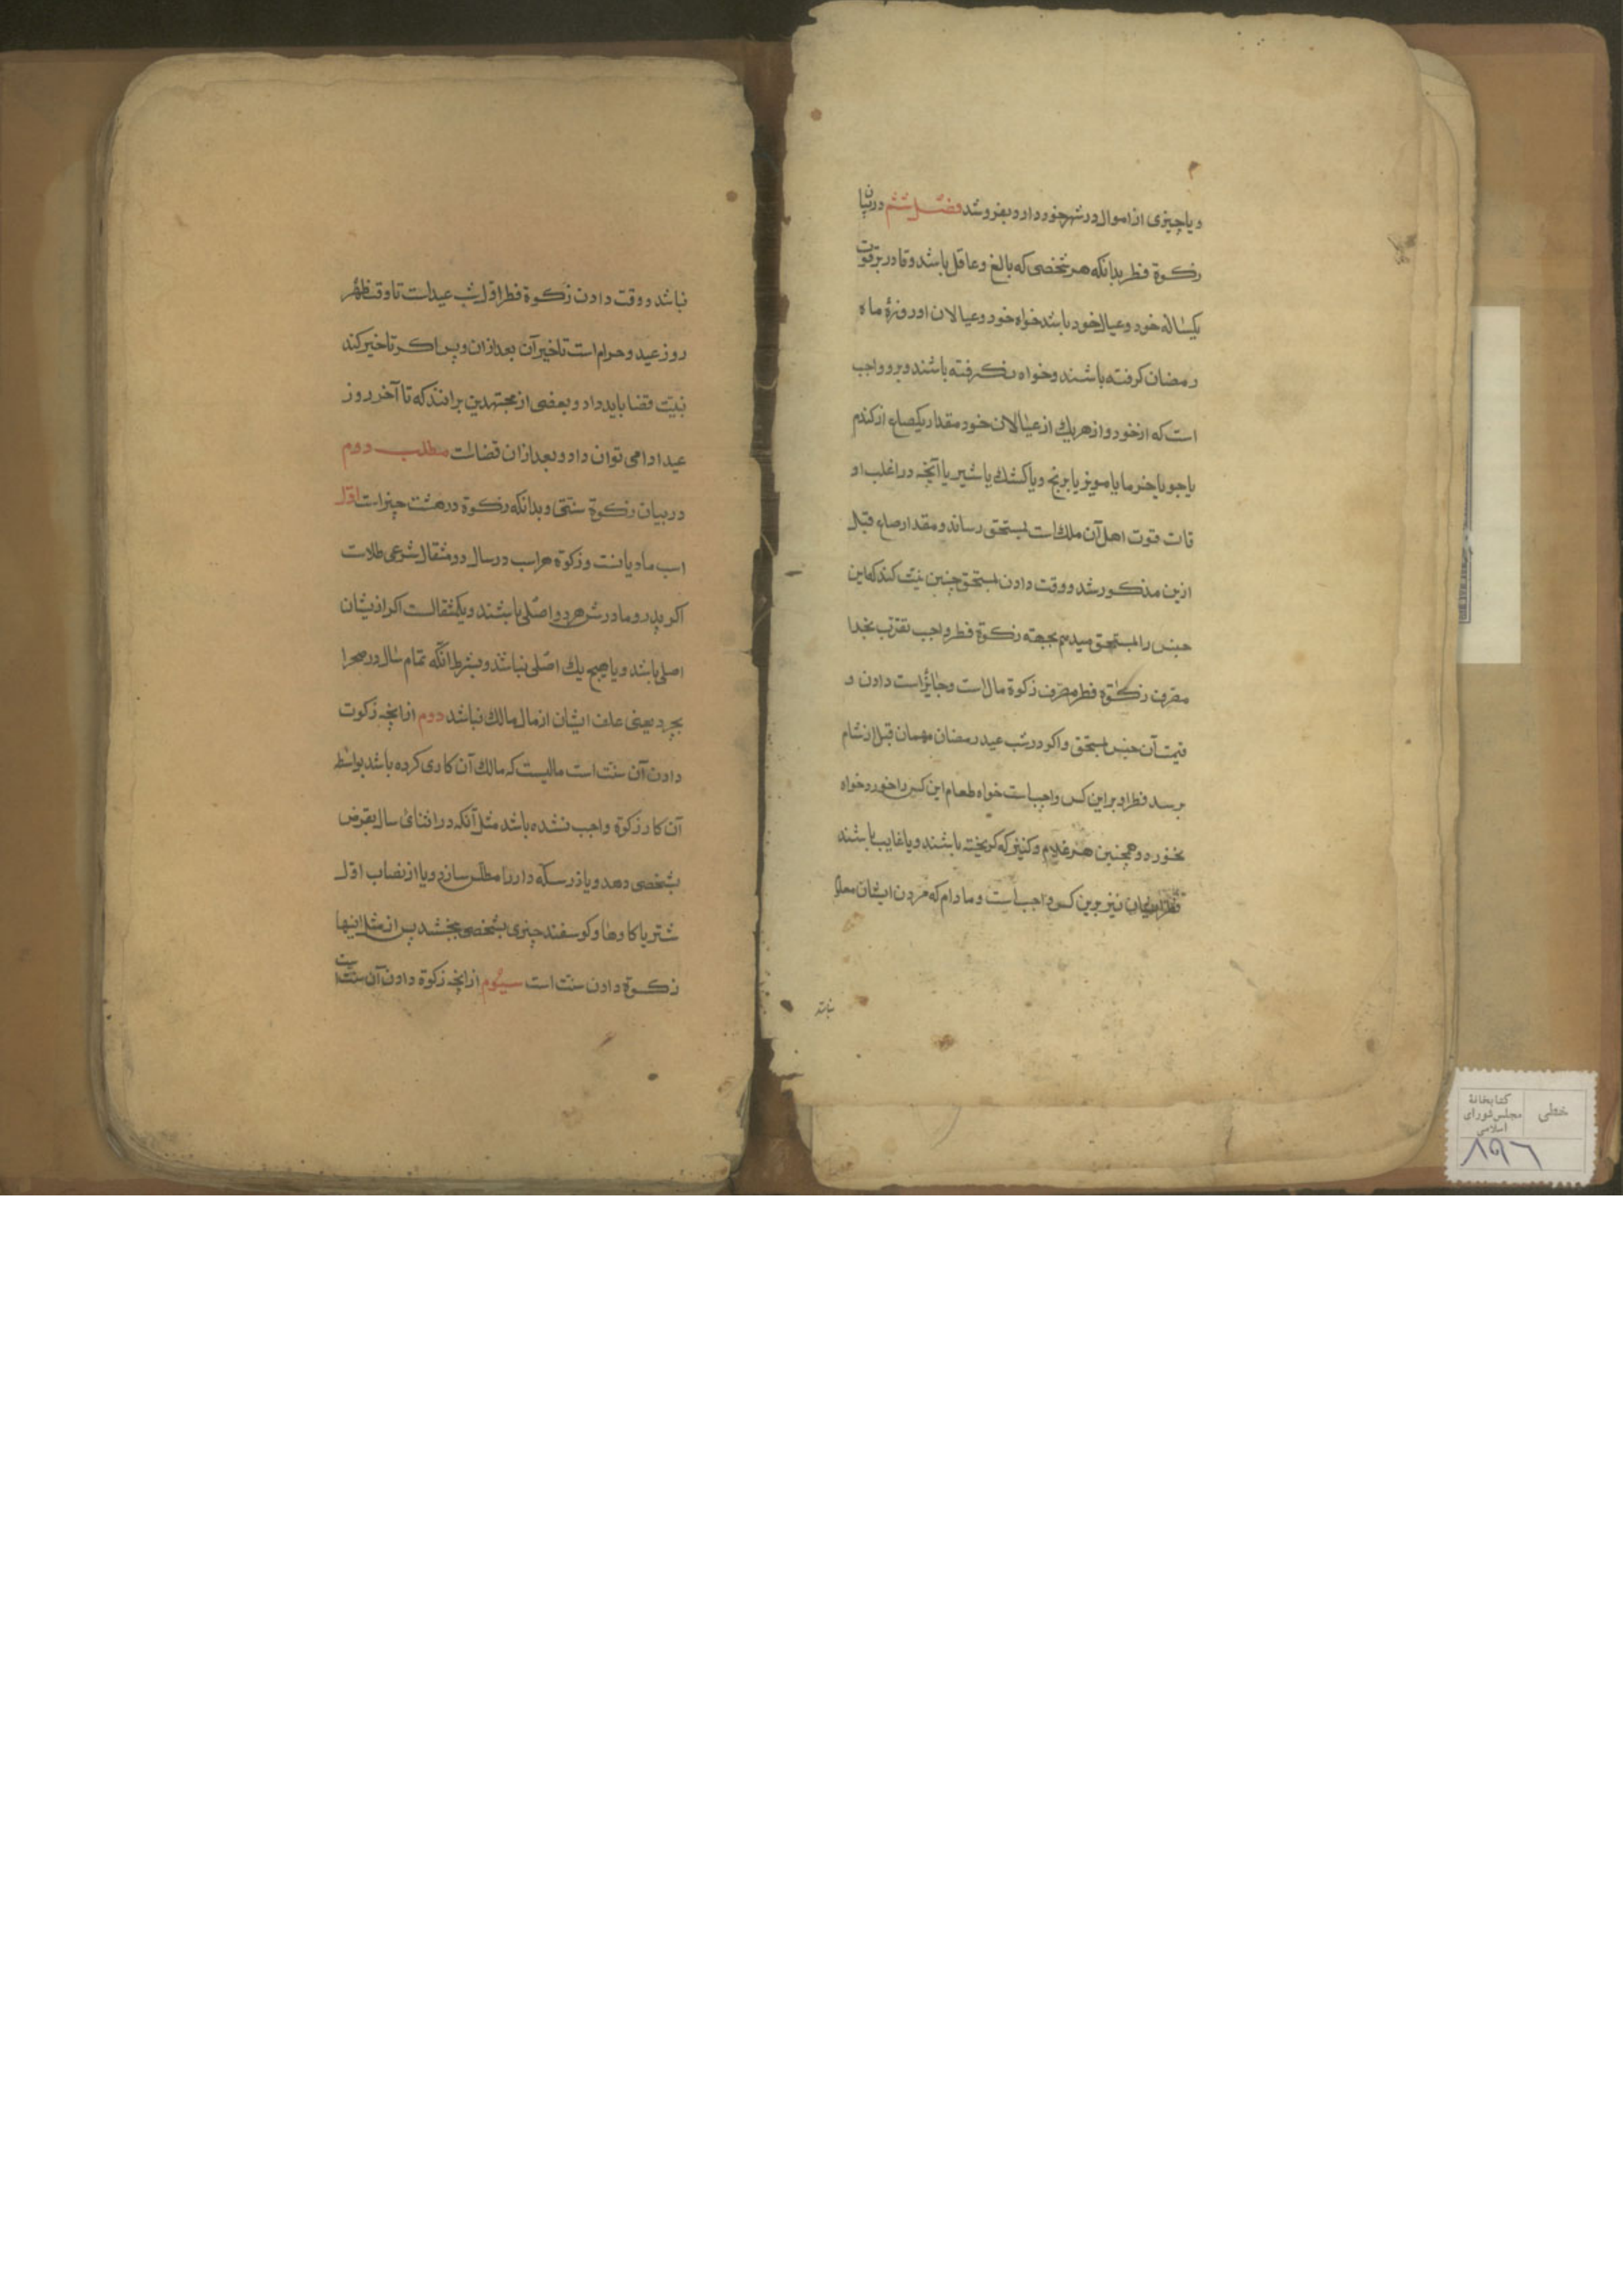 و یا چیزی از اموال در شهر خود دارد بفروشد فصل ششم در بیان
زکوة فطر بدانکه هر شخصی که بالغ و عاقل باشد و قادر بر قوت
یکساله خود و عیال خود باشد خواه خود و عیالان او روزهٔ ماه
رمضان گرفته باشند و خواه نگرفته باشند و برو واجب
است که از خود و از هر یك از عیالان خود مقدار یکصاع از کندم
یا جو یا خرما یا مویز یا برنج و یا کشك یا شیر یا آنچه در اغلب او
قات قوت اهل آن ملك است بمستحق رساند و مقدار صاع قبل
ازین مذکور شد و وقت دادن بمستحق چنین نیت کند که این
جنس را بمستحق میدهم بجهة زکوة فطر واجب تقرب بخدا
مصرف زکوة فطر مصرف زکوة مال است و جایز است دادن و
قیمت آن جنس بمستحق و اکر در شب عید رمضان مهمان قبل از شام
برسد فطر او بر این کس واجبست خواه طعام این کس را خورد خواه
نخورد و همچنین هر غلام و کنیز که کریخته باشند و یا غایب باشند
نیز برین کس واجب است و مادام که مردن ایشان معلوم
نباشد
نباشد و وقت دادن زکوة فطر اول شب عید است تا وقت ظهر
روز عید و حرام است تاخیر آن بعد از ان و پس اکر تاخیر کند
نیت قضا باید داد و بعضی از مجتهدین بر انند که تا آخر روز
عید ادا می توان داد و بعد از ان قضاست مطلب دوم
در بیان زکوة سنتی و بدانکه زکوة در هشت چیز است اول
اسب مادیانست و زکوة هر اسب در سال دو مثقال شرعی طلاست
اکر پدر و مادرش هر دو اصلی باشند و یکمثقالست اکر از ایشان
اصلی باشد و یا هیچ یك اصلی نباشد و بشرط انکه تمام سال در صحرا
بچرد یعنی علف ایشان از مال مالك نباشد دوم از آنچه زکوت
دادن آن سنت است مالیست که مالك آن کاری کرده باشد بواسطه
آن کار زکوة واجب نشده باشد مثل آنکه در اثنای سال بقرض
بشخصی دهد و یا زر سکه دار را مطلس سازد و یا از نصاب اول
شتر یا کاو و یا کوسفند چیزی بشخصی بخشد پس از مثل اینها
زکوة دادن سنت است سیوم از آنچه زکوة دادن آن سنت است
کتابخانهٔ مجلس شورای اسلامی
خطی
۸۹۶